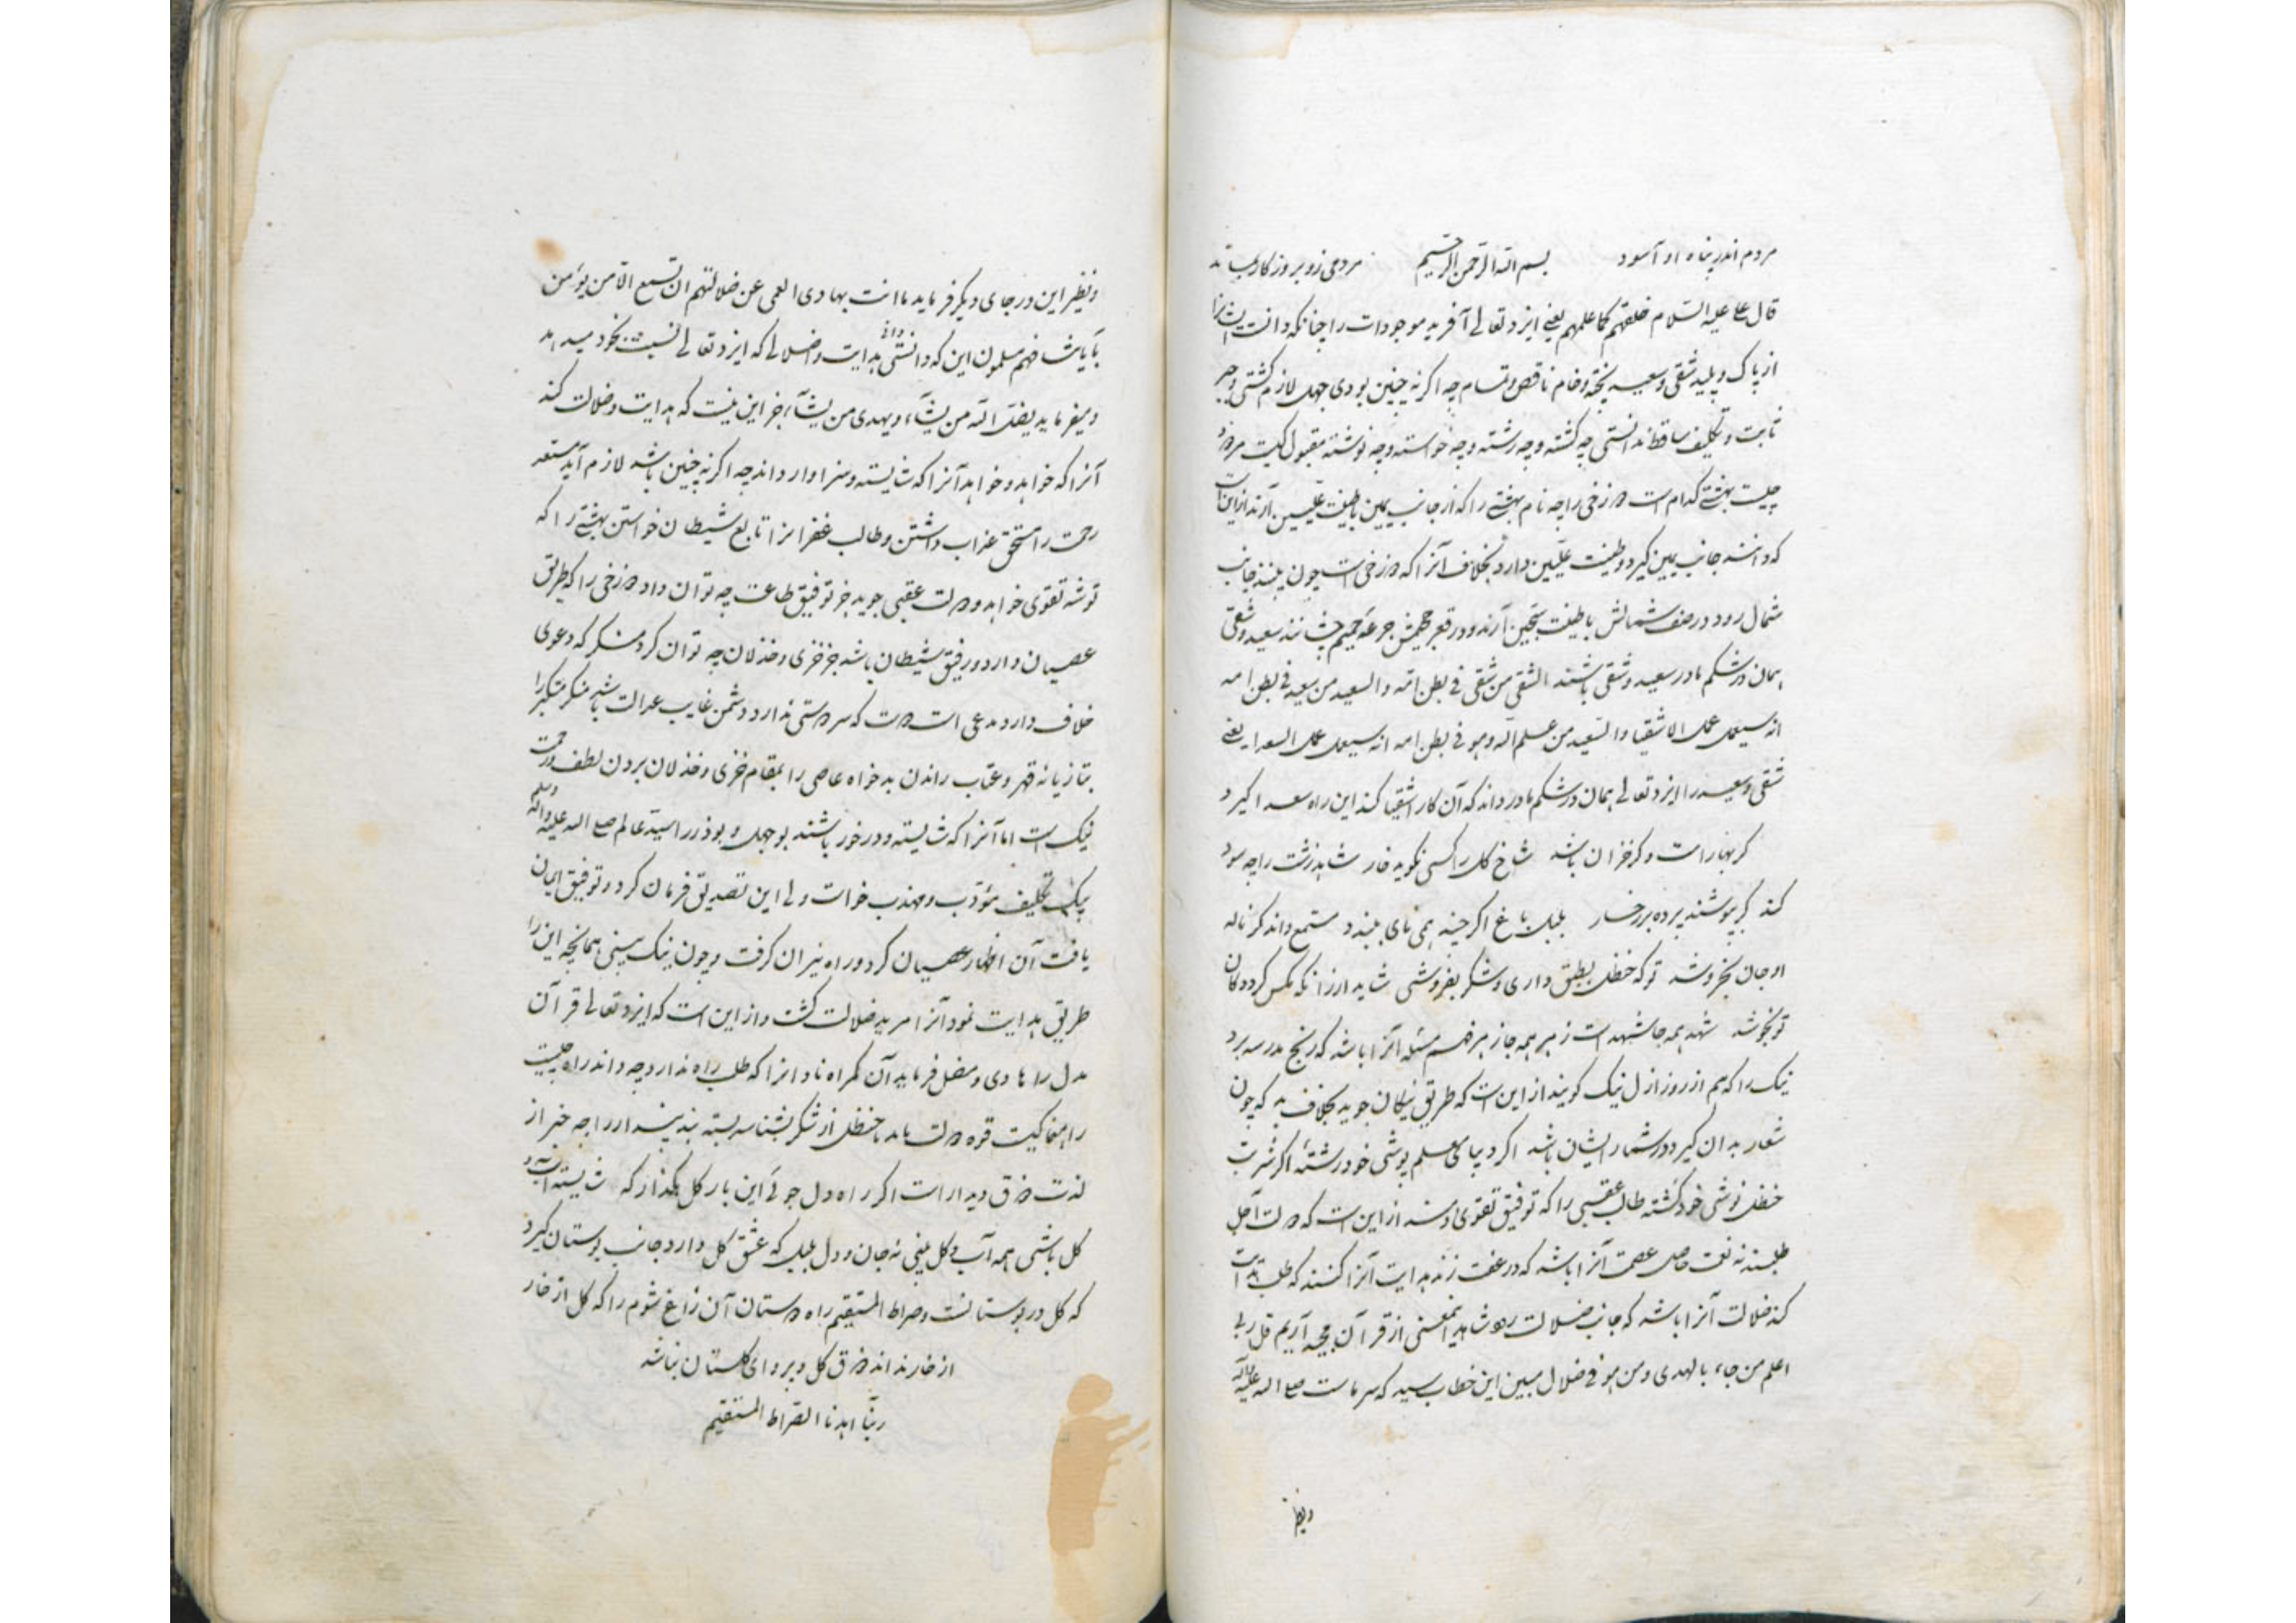 مردم اندر پناه او آسود بسم الله الرحمن الرحیم مردمی زو بروزگار
قال علی علیه السلام خلقهم کما علمهم یعنی ایزد تعالی آفرید موجودات را چنانکه دانست ایشانرا
از پاک و پلید شقی و سعید پخته و خام ناقص و تمام چه اگر نه چنین بودی جهل لازم گشتی و جبر
ثابت و تکلیف ساقط ندانستی چه کشته و چه رشته و چه خواسته و چه نوشته مقبول کیست مردود
چیست بهشتی کدام است دوزخی را چه نام بهشتی را که از جانب یمین با طینت علیین آرند از این است
که دانند جانب یمین گیرد و طینت علیین دارد بخلاف آنرا که دوزخی است چون بینند جانب
شمال رود در صف شمالش با طینت سجین آرند و در قعر جحیمش جرعه حمیم چشانند سعید و شقی
همان در شکم مادر سعید و شقی باشند الشقی من شقی فی بطن امه و السعید من سعد فی بطن امه
انه سیعمل عمل الاشقیا و السعید من علم الله و هو فی بطن امه انه سیعمل عمل السعدا یعنی
شقی و سعید را ایزد تعالی همان در شکم مادر داند که آن کار اشقیا کند این راه سعدا گیرد
گر بهار است و گر خزان باشد شاخ گل را کسی نگوید خار شاهد زشت را چه سود
کند گر بپوشند پرده بر رخسار بلبل باغ اگر چند همی نای ببندد مستمع داند کز ناله
او جان بخروشد تو که حنظل بطبق داری و شکر بفروشی شاید ار زانکه مگس گرد دکان
تو نجوشد شهد همه جا شهد است زهر همه جا زهر فهم مسئله آنرا باشد که رنج مدرسه برد
نیک را که هم از روز ازل نیک گویند از این است که طریق نیکان جوید بخلاف بد که چون
شعار بدان گیرد در شمار ایشان باشد اگر دیبای معلم پوشی خود رشتهٔ اگر شربت
حنظل نوشی خود کشته طالب عقبی را که توفیق تقوی دهند از این است که دولت آجل
طلبد نه نعت عاجل عصمت آنرا باشد که در عفت زند هدایت آنرا کنند که طلب هدایت
کند ضلالت آنرا باشد که جانب ضلالت رود شاهد این معنی از قرآن مجید آریم قل ربی
اعلم من جاء بالهدی و من هو فی ضلال مبین این خطاب بسید که سرماست صلی الله علیه و آله
ونظیر
ونظیر این در جای دیگر فرماید ما انت بهادی العمی عن ضلالتهم ان تسمع الا من یؤمن
بآیاتنا فهم مسلمون این که دانستی دانی هدایت و اضلالی که ایزد تعالی نسبت بخود میدهد
و میفرماید یضل الله من یشآء و یهدی من یشآء جز این نیست که هدایت و ضلالت کند
آنرا که خواهد و خواهد آنرا که شایسته و سزاوار داند چه اگر نه چنین باشد لازم آید مستعد
رحمت را مستحق عذاب داشتن و طالب غفرانرا تابع شیطان خواستن بهشتی را که
توشه تقوی خواهد و دولت عقبی جوید جز توفیق طاعت چه توان داد دوزخی را که طریق
عصیان دارد و رفیق شیطان باشد جز خزی و خذلان چه توان کرد منکر که دعوی
خلاف دارد مدعی است دوست که سر دوستی ندارد دشمن غایب عدالت باشد منکر متکبر را
بتازیانه قهر و عتاب راندن بدخواه عاصی را بمقام خزی و خذلان بردن لطف و رحمت
نیک است اما آنرا که شایسته و در خور باشند بوجهل و بوذر را سید عالم صلی الله علیه و آله وسلم
بیک تکلیف مؤدب و مهذب خواست ولی این تصدیق فرمان کرد و توفیق ایمان
یافت آن اظهار عصیان کرد و راه نیران گرفت و چون نیک بینی همانچه این را
طریق هدایت نمود آنرا مرید ضلالت گشت و از این است که ایزد تعالی قرآن
مدل را هادی و مضل فرماید آن گمراه نادانرا که طلب راه ندارد چه داند راه چیست
لذت ذوق دیدار است اگر راه دل جوئی این بار گل بگذار که شایسته
گل باشی همه آب و گل بینی نه جان و دل بلبل که عشق گل دارد جانب بوستان گیرد
که گل در بوستانست و صراط المستقیم راه دوستان آن زاغ شوم را که گل از خار
از خار نداند ذوق گل و پروای گلستان نباشد
ربنا اهدنا الصراط المستقیم